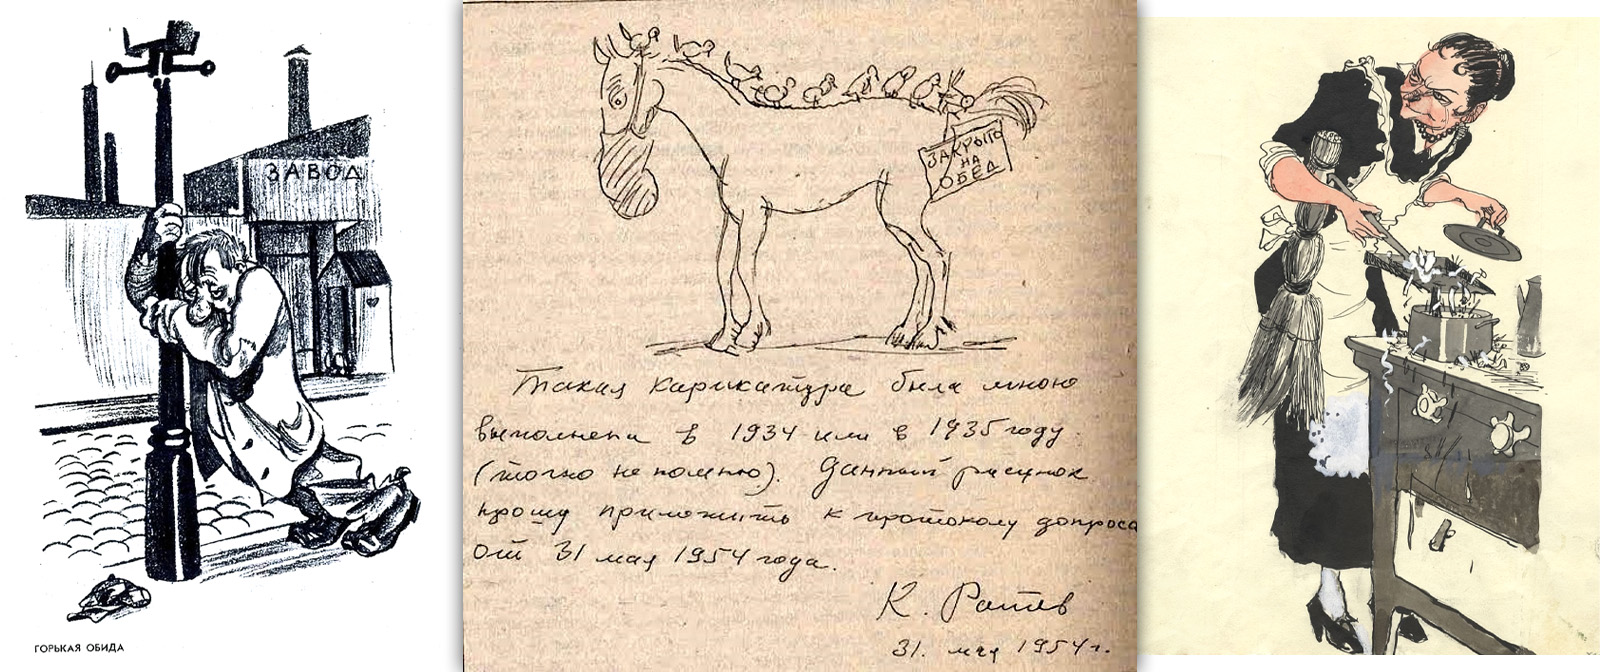 ЗАВОД
ГОРЬКАЯ ОБИДА
ЗАКРЫТО
НА
ОБЕД
Такая карикатура была мною
выполнена в 1934 или в 1935 году.
(точно не помню). Данный рисунок
прошу приложить к протоколу допроса
от 31 мая 1954 года.
К. Ротов
31. мая 1954 г.